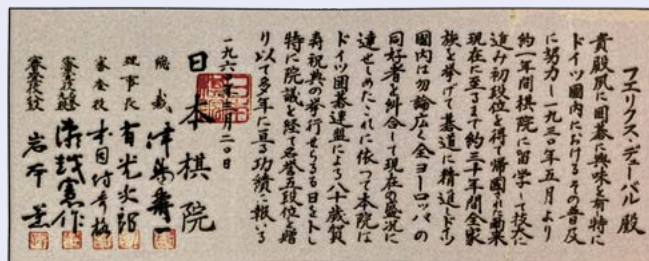 フエリクス・デューバル殿
貴殿夙に囲碁に興味を有特に
ドイツ國内におけるその普及
に努力し一九三〇年五月より
約一年間棋院に留学して技大に
進み初段位を得て帰國され爾来
現在に至るまで約三十年間全家
族を挙げて碁道に精進しドイツ
國内は勿論広く全ヨーロッパの
同好者を糾合して現在の盛況に
達せしめたこれに依って本院は
ドイツ囲碁連盟による八十歳賀
寿祝典の挙行せらるる日を卜し
特に院議を経て名誉五段位を贈
り以て多年に亘る功績に報いる
一九六〇年三月二〇日
日本棋院
総裁 津島壽一
理事長 有光次郎
審査役 本因坊秀格
審査役 瀬越憲作
審査役 岩本薫